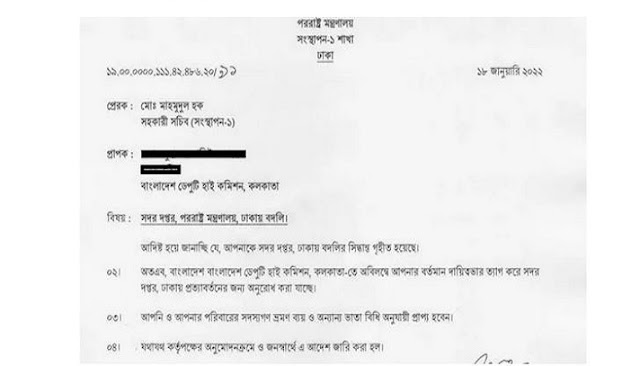 পররাষ্ট্র মন্ত্রণালয়
সংস্থাপন-১ শাখা
ঢাকা
১৯.০০.০০০০.১১১.৪২.৪৮৬.২০/
১৮ জানুয়ারি ২০২২
প্রেরক : মোঃ মাহমুদুল হক
সহকারী সচিব (সংস্থাপন-১)
প্রাপক :
বাংলাদেশ ডেপুটি হাই কমিশন, কলকাতা
বিষয় : সদর দপ্তর, পররাষ্ট্র মন্ত্রণালয়, ঢাকায় বদলি।
আদিষ্ট হয়ে জানাচ্ছি যে, আপনাকে সদর দপ্তর, ঢাকায় বদলির সিদ্ধান্ত গৃহীত হয়েছে।
০২। অতএব, বাংলাদেশ বাংলাদেশ ডেপুটি হাই কমিশন, কলকাতা-তে অবিলম্বে আপনার বর্তমান দায়িত্বভার ত্যাগ করে সদর
দপ্তর, ঢাকায় প্রত্যাবর্তনের জন্য অনুরোধ করা যাচ্ছে।
০৩। আপনি ও আপনার পরিবারের সদস্যগণ ভ্রমণ ব্যয় ও অন্যান্য ভাতা বিধি অনুযায়ী প্রাপ্য হবেন।
০৪। যথাযথ কর্তৃপক্ষের অনুমোদনক্রমে ও জনস্বার্থে এ আদেশ জারি করা হল।